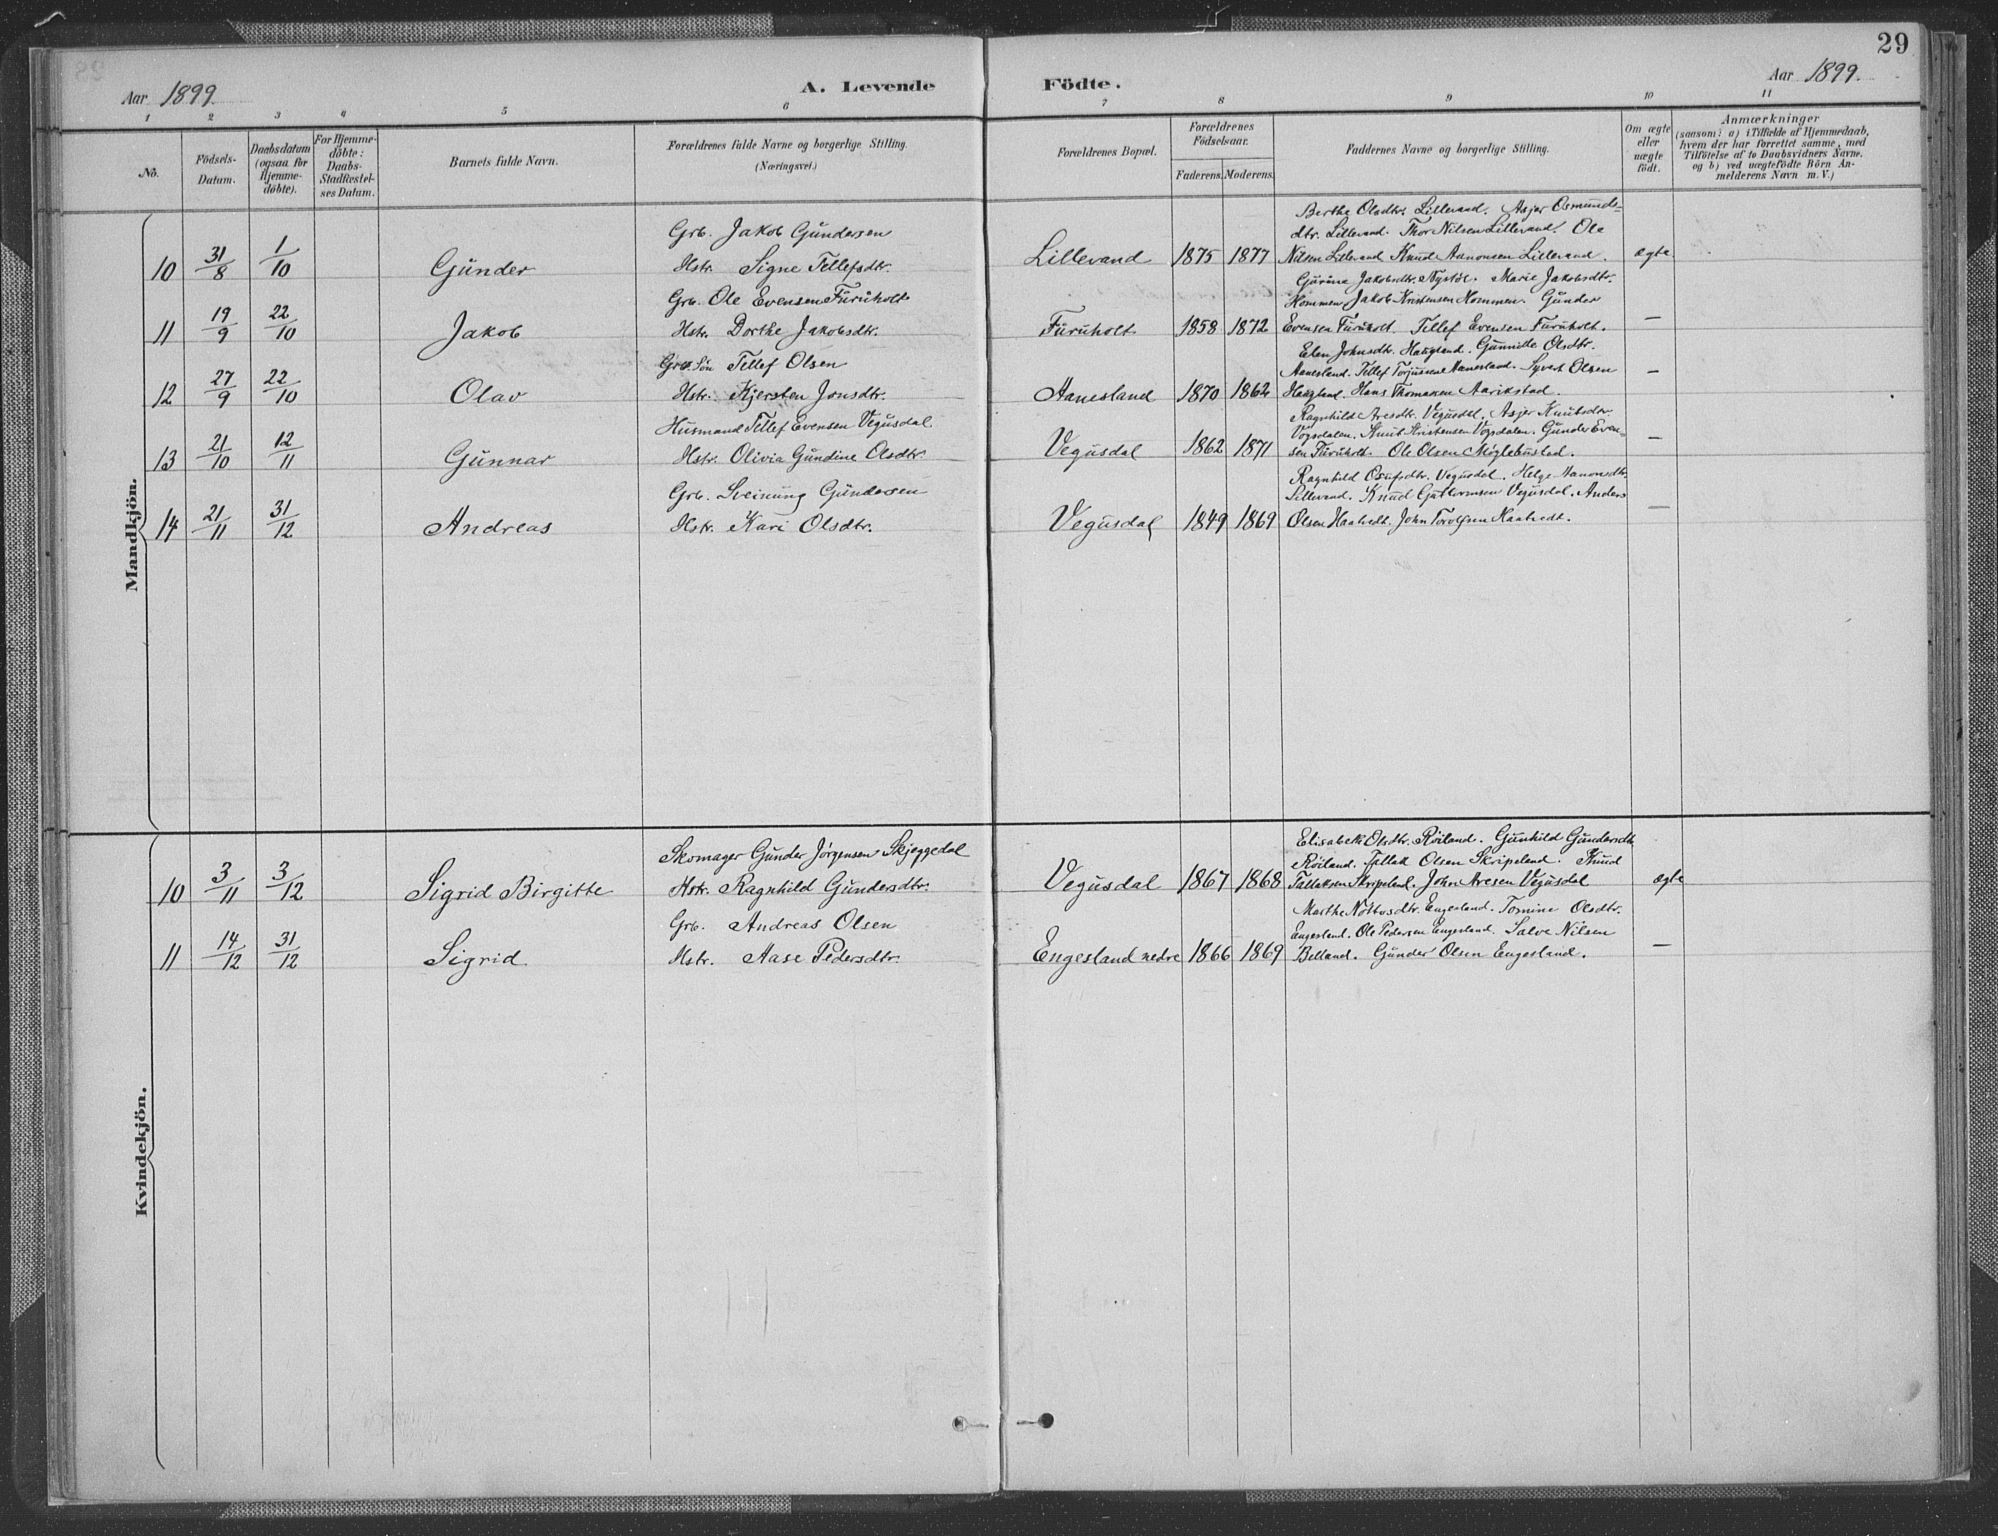 29
Aar 1899.
A. Levende
Födte.
Aar 1899.
1 2 3 4 5 6 7 8 9 10 11
No.
Födsels-
Datum.
Daabsdatum
(ogsaa för
Hjemme-
döbte).
For Hjemme-
döbte:
Daabs-
Stadfæstel-
ses Datum.
Barnets fulde Navn.
Forældrenes fulde Navne og borgerlige Stilling.
(Næringsvei.)
Forældrenes Bopæl.
Forældrenes
Födselsaar.
Faderens. Moderens.
Faddernes Navne og borgerlige Stilling.
Om ægte
eller
uægte
födt.
Anmærkninger
(saasom: a) i Tilfælde af Hjemmedaab,
hvem der har forrettet samme, med
Tilföielse af to Daabsvidners Navne,
og b) ved uægtefödte Börn An-
melderens Navn m. V.)
Mandkjön.
10 31/8 1/10 Gunder
Grb. Jakob Gundersen
Hstr. Signe Tellefsdtr.
Lillevand 1875 1877
Berthe Olsdtr. Lillevand. Asjer Osmunds-
dtr. Lillevand. Thor Nilsen Lillevand. Ole
Nilsen Lillevand Knud Aanonsen Lillevand.
ægte
11 19/9 22/10 Jakob
Grb. Ole Evensen Furuholt
Hstr. Dorthe Jakobsdtr.
Furuholt 1858 1872
Gurine Jakobsdtr. Nystøl. Marie Jakobsdtr.
Hommen Jakob Kristensen Hommen. Gunder
Evensen Furuholt. Tellef Evensen Furuholt.
—
12 27/9 22/10 Olav
Grb. Søn Tellef Olsen
Hstr. Kjersten Jonsdtr.
Aanesland 1870 1862
Elen Johnsdtr. Haugland. Gunnille Olsdtr.
Aanesland. Tellef Torjussen Aanesland. Syvert Olsen
Haugland. Hans Thomasen Aarikstad.
—
13 21/10 12/11 Gunnar
Husmand Tellef Evensen Vegusdal
Hstr. Olivia Gundine Olsdtr.
Vegusdal 1862 1871
Ragnhild Aresdtr. Vegusdal. Asjer Knutsdtr.
Vogsdalen. Knut Kristensen Vogsdalen. Gunder Even-
sen Furuholt. Ole Olsen Møglebustad.
—
14 21/11 31/12 Andreas
Grb. Sveinung Gundersen
Hstr. Kari Olsdtr.
Vegusdal 1849 1869
Ragnhild Osufsdtr. Vegusdal. Helge Aanonsdtr.
Lillevand. Knud Guttormsen Vegusdal. Anders
Olsen Haahedt. John Torolfsen Kaahedt.
—
Kvindekjön.
10 3/11 3/12 Sigrid Birgitte
Skomager Gunder Jørgensen Skjeggedal
Hstr. Ragnhild Gundersdtr.
Vegusdal 1867 1868
Elisabeth Olsdtr. Røiland. Gunhild Gundersdtr.
Røiland. Tallak Olsen Skripeland. Knud
Tallaksen Skripeland. John Aresen Vegusdal
ægte
11 14/12 31/12 Sigrid
Grb. Andreas Olsen
Hstr. Aase Pedersdtr.
Engesland nedre 1866 1869
Marthe Notbosdtr. Engesland. Tomine Olsdtr.
Engesland. Ole Pedersen Engesland. Salve Nilsen
Belland. Gunder Olsen Engesland.
—